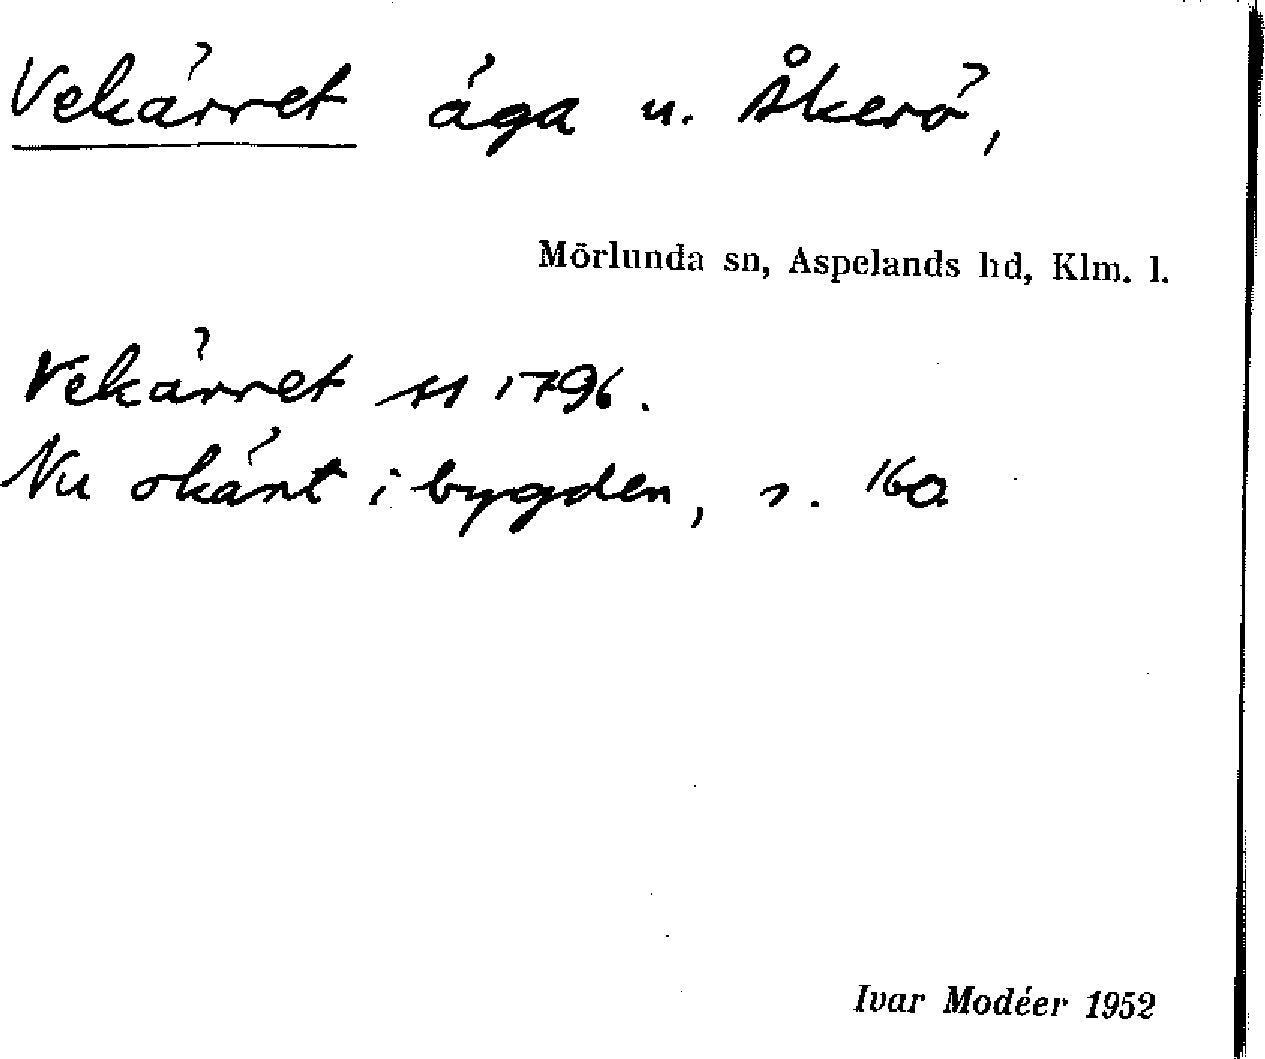 Vekärret äga u. Åkerö,
Mörlunda sn, Aspelands hd, Klm. l.
Vekärret 1796.
Nu okänt i bygden, s. 160
Ivar Modéer 1952